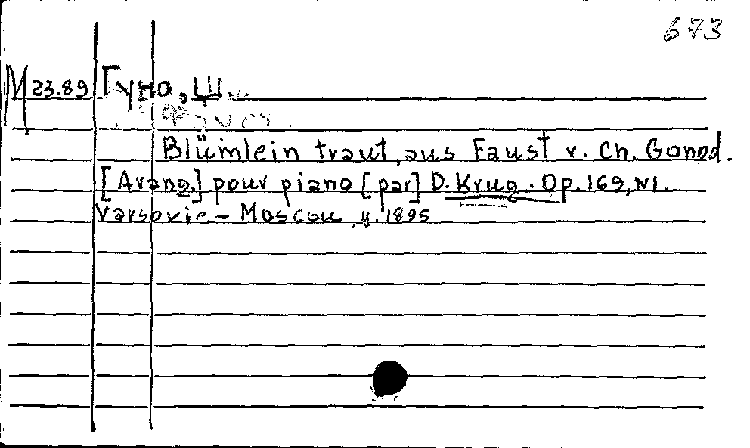 673
М 23.89 Гуно, Ш.
Blümlein traut, aus Faust v. Ch. Gonod.
[Arang.] pour piano [par] D. Krug. Op. 169, N1.
Varsovie – Moscou, ц. 1895